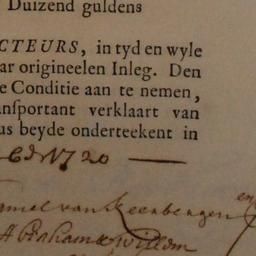 Duizend guldens
CTEURS, in tyd en wyle
ar origineelen Inleg. Den
e Conditie aan te nemen,
ansportant verklaart van
us beyde onderteekent in
1720
van
Abraham Willem